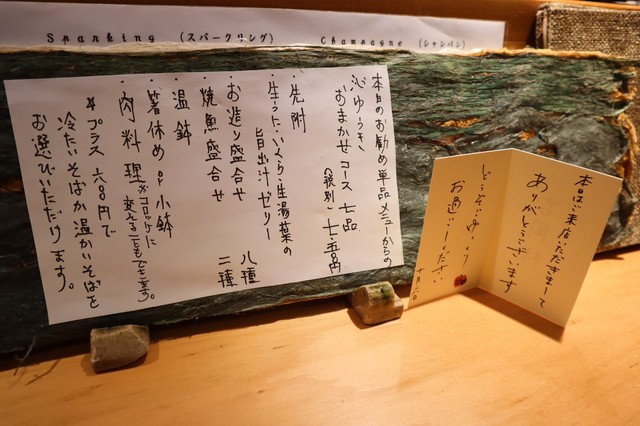 Sparkling (スパークリング)
Champagne (シャンパン)
本日のお勧め単品メニューからの
心ゆうき
おまかせコース 七品
(税別) 七三五〇円
先附
生うに・いくら・生湯葉の
旨出汁ゼリー
お造り盛合せ 八種
焼魚盛合せ 二種
温鉢
箸休め 小鉢
肉料理
※コロッケに
変えることもできます。
プラス 六〇〇円で
冷たいそばか温かいそばを
お選びいただけます。
本日はご来店いただきまして
ありがとうございます
どうぞごゆっくり
お過ごしください